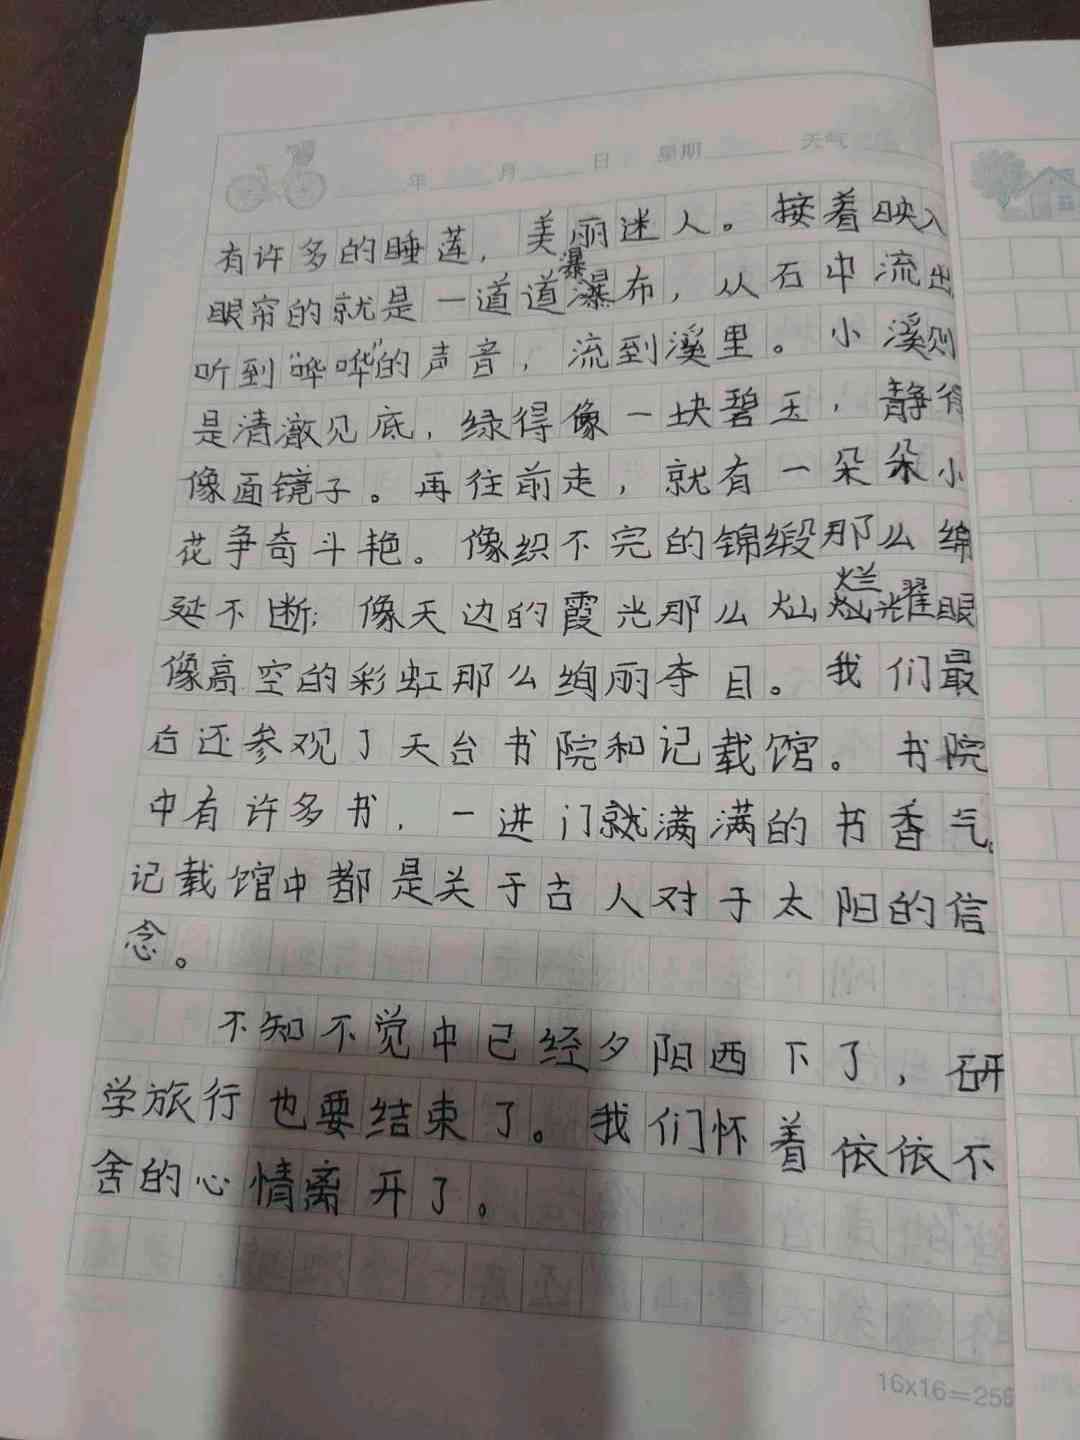 年 月 日 星期 天气
有许多的睡莲，美丽迷人。接着映入
眼帘的就是一道道瀑布，从石中流出
听到“哗哗”的声音，流到溪里。小溪则
是清澈见底，绿得像一块碧玉，静得
像面镜子。再往前走，就有一朵朵小
花争奇斗艳。像织不完的锦缎那么绵
延不断；像天边的霞光那么灿烂耀眼
像高空的彩虹那么绚丽夺目。我们最
后还参观了天台书院和记载馆。书院
中有许多书，一进门就满满的书香气。
记载馆中都是关于古人对于太阳的信
念。
不知不觉中已经夕阳西下了，研
学旅行也要结束了。我们怀着依依不
舍的心情离开了。
16x16=256